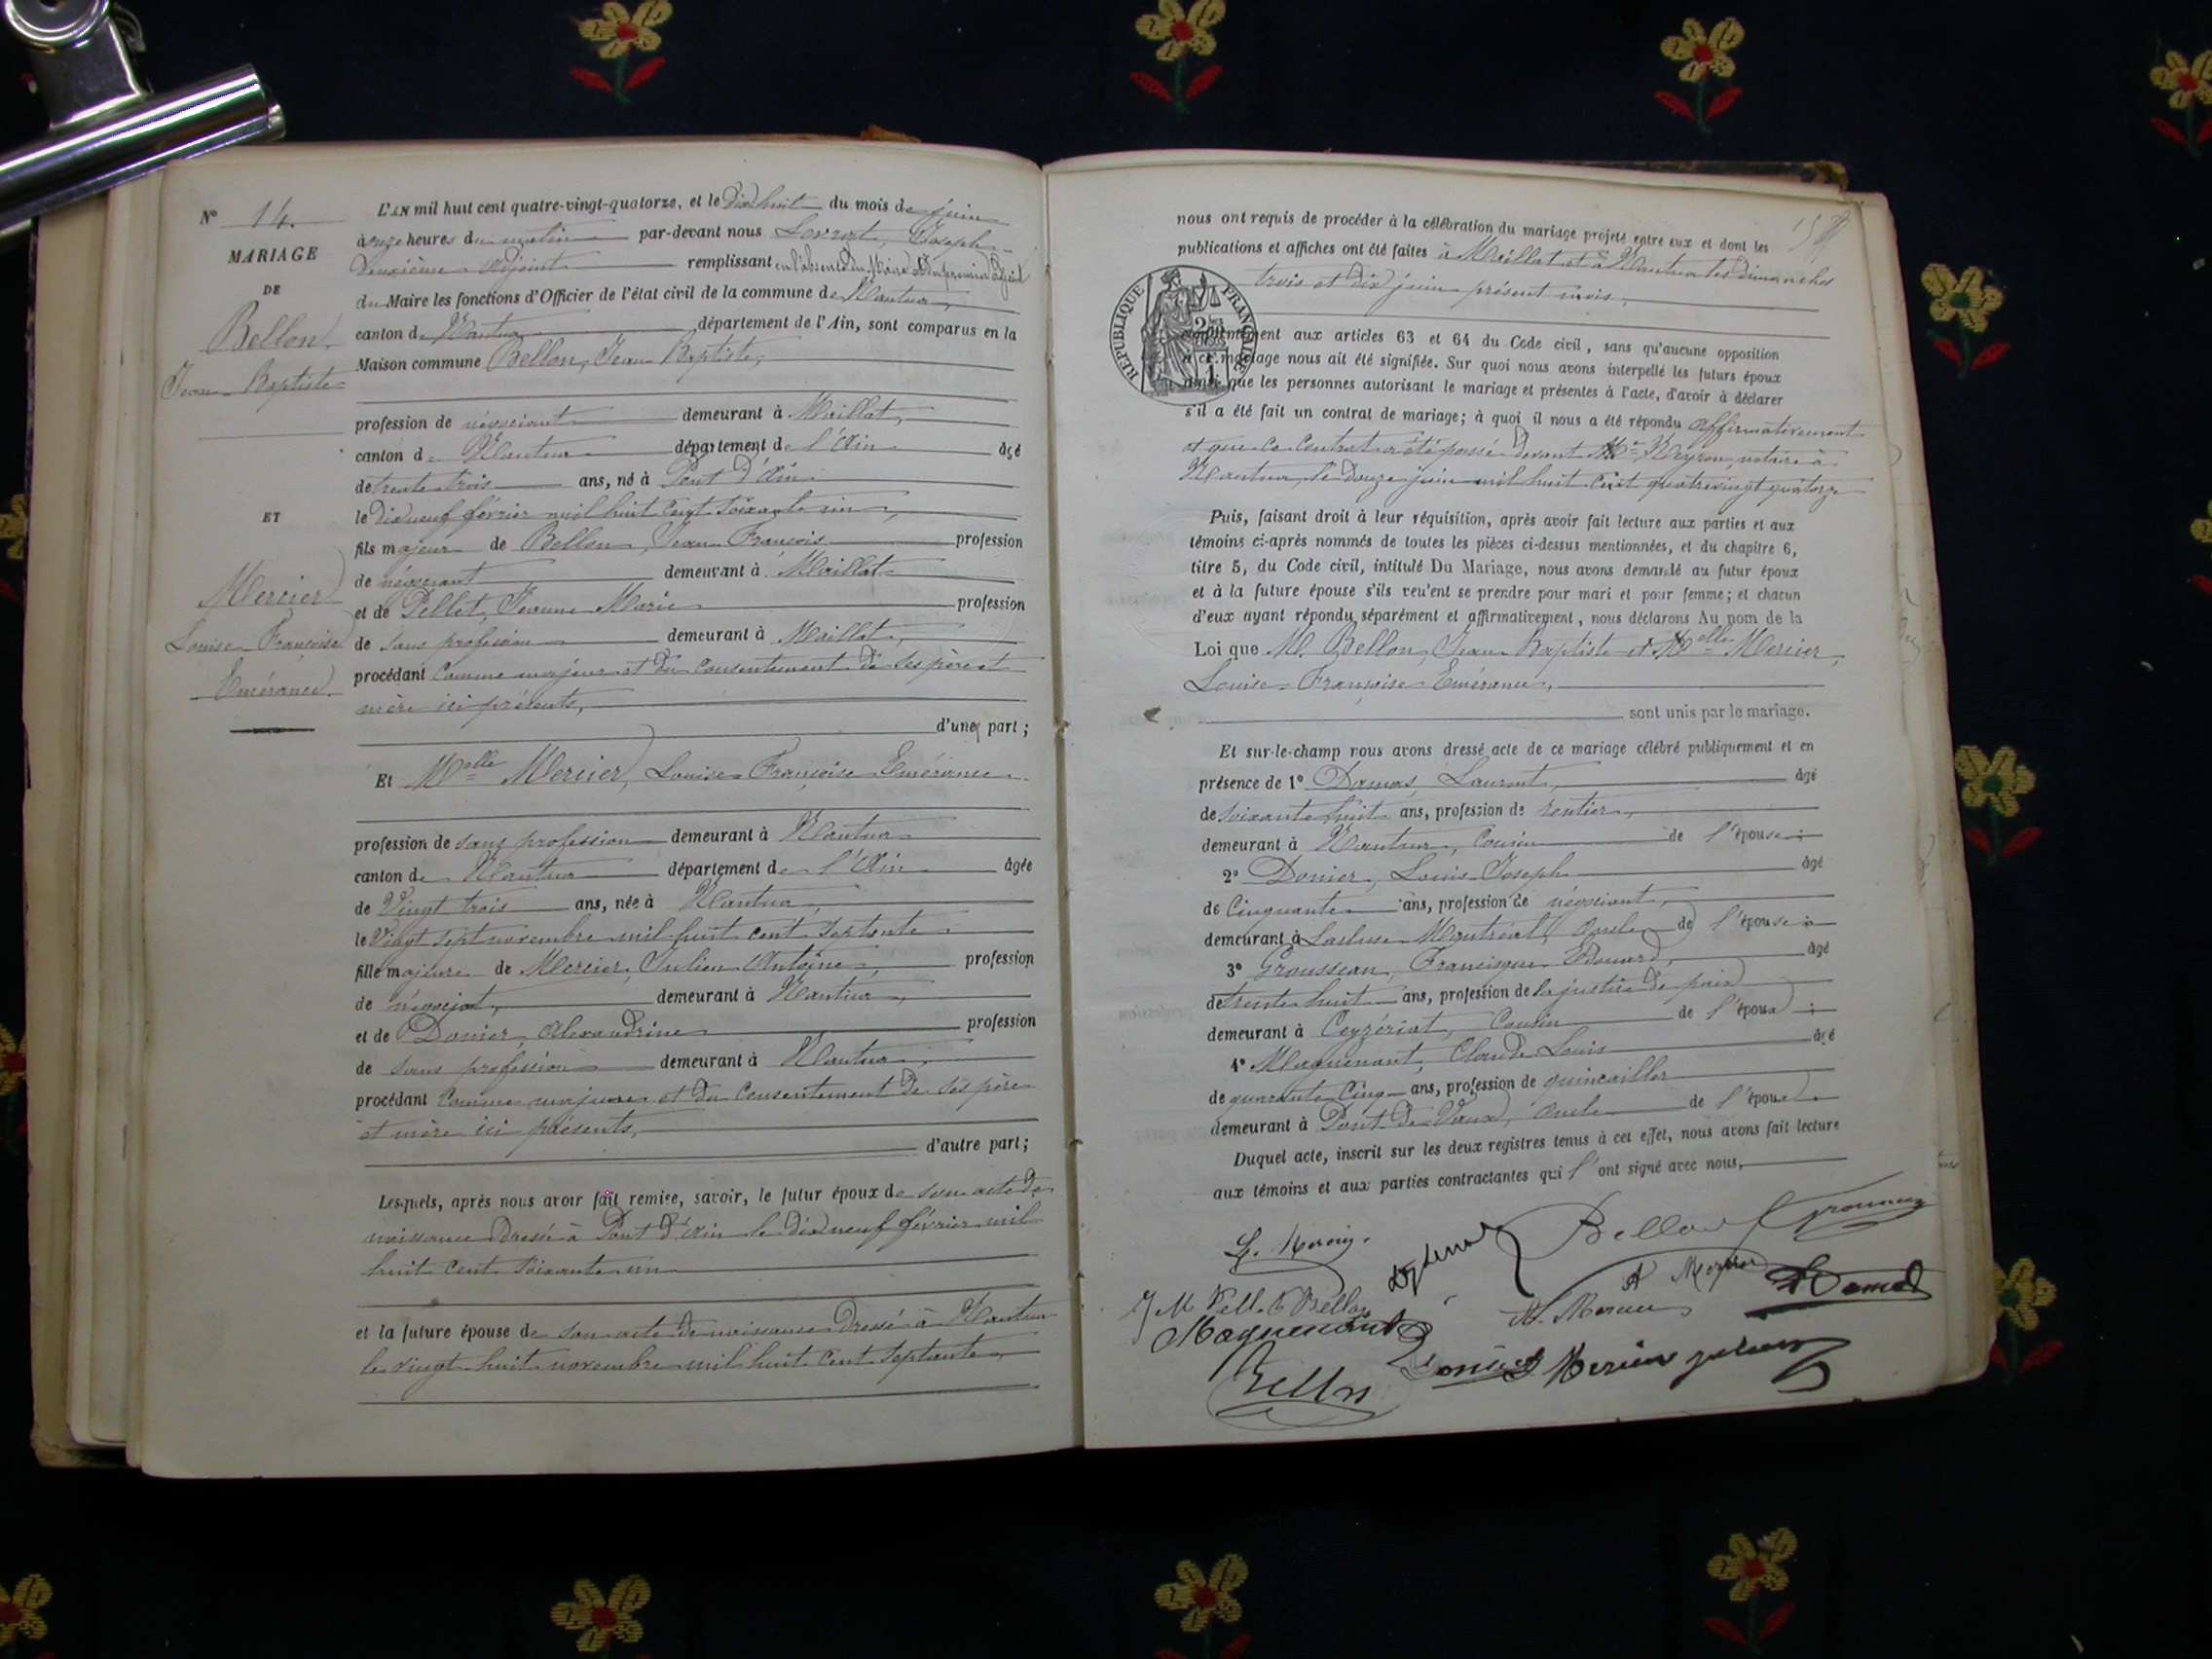 N° 14.
MARIAGE
DE
Bellon
Jean Baptiste
ET
Mercier
Louise Françoise
Emérance
L'AN mil huit cent quatre-vingt-quatorze, et le dix huit du mois de juin
à onze heures du matin par-devant nous Joseph
Deuxième adjoint remplissant en l'absence du Maire et du premier adjoint
du Maire les fonctions d'Officier de l'état civil de la commune de Nantua,
canton de Nantua département de l'Ain, sont comparus en la
Maison commune Bellon, Jean Baptiste,
profession de négociant demeurant à Maillat,
canton de Nantua département de l'Ain âgé
de trente trois ans, né à Pont d'Ain
le dix neuf février mil huit cent soixante un,
fils majeur de Bellon, Jean François profession
de négociant demeurant à Maillat
et de Pellet, Jeanne Marie profession
de sans profession demeurant à Maillat,
procédant comme majeur et du consentement de ses père et
mère ici présents,
d'une part ;
Et Melle Mercier, Louise Françoise Emérance
profession de sans profession demeurant à Nantua
canton de Nantua département de l'Ain âgée
de vingt trois ans, née à Nantua,
le vingt sept novembre mil huit cent septante
fille majeure de Mercier, Julien Antoine, profession
de négociant, demeurant à Nantua,
et de Donier, Alexandrine profession
de sans profession demeurant à Nantua,
procédant comme majeure et du consentement de ses père
et mère ici présents,
d'autre part ;
Lesquels, après nous avoir fait remise, savoir, le futur époux de son acte de
naissance dressé à Pont d'Ain le dix neuf février mil
huit cent soixante un
et la future épouse de son acte de naissance dressé à Nantua
le vingt huit novembre mil huit cent septante,
nous ont requis de procéder à la célébration du mariage projeté entre eux et dont les
publications et affiches ont été faites à Maillat et à Nantua les dimanches
trois et dix juin présent mois,
RÉPUBLIQUE FRANÇAISE
conformément aux articles 63 et 64 du Code civil, sans qu'aucune opposition
à ce mariage nous ait été signifiée. Sur quoi nous avons interpellé les futurs époux
ainsi que les personnes autorisant le mariage et présentes à l'acte, d'avoir à déclarer
s'il a été fait un contrat de mariage; à quoi il nous a été répondu affirmativement
et que ce contrat a été passé devant Me Meyron, notaire à
Nantua, le douze juin mil huit cent quatrevingt quatorze
Puis, faisant droit à leur réquisition, après avoir fait lecture aux parties et aux
témoins ci-après nommés de toutes les pièces ci-dessus mentionnées, et du chapitre 6,
titre 5, du Code civil, intitulé Du Mariage, nous avons demandé au futur époux
et à la future épouse s'ils veulent se prendre pour mari et pour femme; et chacun
d'eux ayant répondu séparément et affirmativement, nous déclarons Au nom de la
Loi que M. Bellon, Jean Baptiste et Melle Mercier,
Louise Françoise Emérance,
sont unis par le mariage.
Et sur-le-champ nous avons dressé acte de ce mariage célébré publiquement et en
présence de 1° Damas, Laurent, âgé
de soixante huit ans, profession de rentier,
demeurant à Nantua, cousin de l'épouse ;
2° Donier, Louis Joseph âgé
de cinquante ans, profession de négociant,
demeurant à Lacluse Montréal, oncle de l'épouse ;
3° Groussean, Francisque Edouard, âgé
de trente huit ans, profession de la justice de paix
demeurant à Ceyzériat, cousin de l'époux ;
4° Maguenant, Claude Louis âgé
de quarante cinq ans, profession de quincailler
demeurant à Pont de Vaux, oncle de l'époux.
Duquel acte, inscrit sur les deux registres tenus à cet effet, nous avons fait lecture
aux témoins et aux parties contractantes qui l'ont signé avec nous,
Bellon
A Mercier
Damas
Maguenant
Mercier julien
Bellon